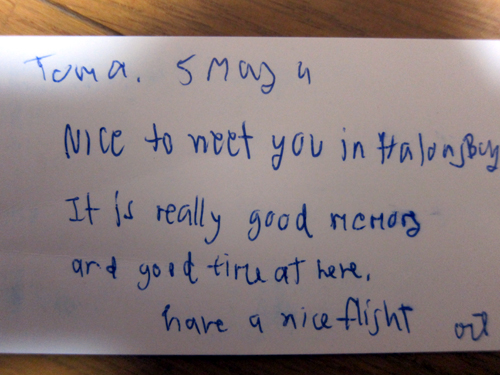 Toma.
Nice to meet you in Halong Bay
It is really good memory
and good time at here.
have a nice flight